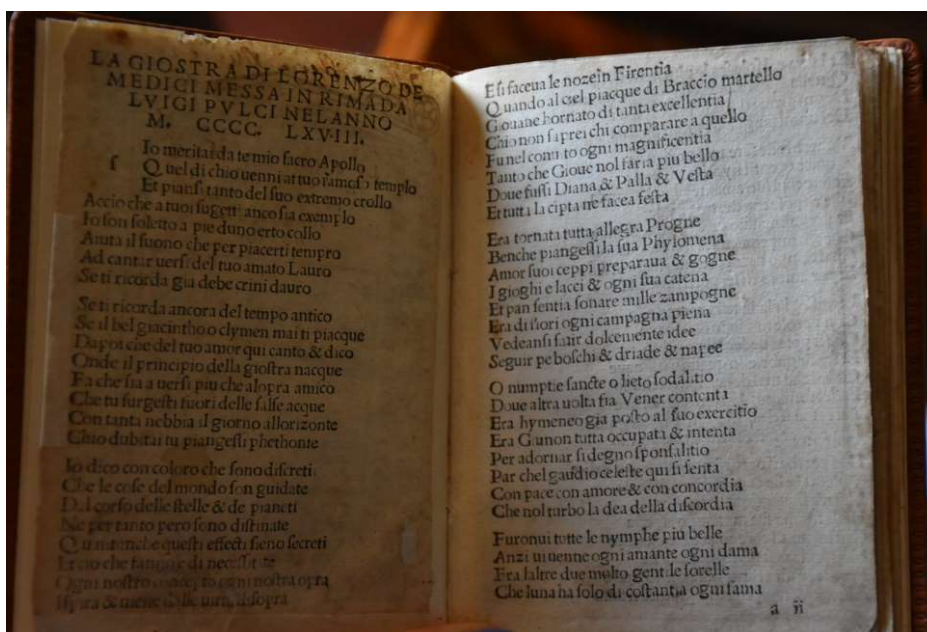 LA GIOSTRA DI LORENZO DE
MEDICI MESSA IN RIMA DA
LVIGI PVLCI NEL ANNO
M. CCCC. LXVIII.
Io meritai da te mio sacro Apollo
ſ Quel di chio uenni al tuo famoſo templo
Et pianſi tanto del ſuo extremo crollo
Accio che a tuoi ſugetti anco ſia exemplo
Io ſon ſoletto a pie duno erto collo
Aiuta il ſuono che per piacerti tempro
Ad cantar uerſi del tuo amato Lauro
Se ti ricorda gia debe crini dauro
Se ti ricorda ancora del tempo antico
Se il bel giacintho o clymen mai ti piacque
Dapoi che del tuo amor qui canto & dico
Onde il principio della gioſtra nacque
Fa che ſia a uerſi piu che alopra amico
Che tu ſurgeſti fuori delle ſalſe acque
Con tanta nebbia il giorno allorizonte
Chio dubitai tu piangeſſi phethonte
Io dico con coloro che ſono diſcreti
Che le coſe del mondo ſon guidate
Dal corſo delle ſtelle & de pianeti
Ne per tanto pero ſono diſtinate
Quantunche queſti effecti ſieno ſecreti
Et cio che di neceſſitate
Ogni noſtro concepto ogni noſtra opra
&
Eſi faceua le noze in Firentia
Quando al ciel piacque di Braccio martello
Giouane hornato di tanta excellentia
Chio non ſaprei chi comparare a quello
Fu nel conuito ogni magnificentia
Tanto che Gioue nol faria piu bello
Doue fuſſi Diana & Palla & Veſta
Et tutta la cipta ne facea feſta
Era tornata tutta allegra Progne
Benche piangeſſi la ſua Phylomena
Amor ſuoi ceppi preparaua & gogne
I gioghi e lacci & ogni ſua catena
Et pan ſentia ſonare mille zampogne
Era di fiori ogni campagna piena
Vedeanſi ſatir dolcemente idee
Seguir pe boſchi & driade & napee
O numptie ſancte o lieto ſodalitio
Doue altra uolta fia Vener contenta
Era hymeneo gia poſto al ſuo exercitio
Era Giunon tutta occupata & intenta
Per adornar ſi degno ſponſalitio
Par chel gaudio celeſte qui ſi ſenta
Con pace con amore & con concordia
Che nol turbo la dea della diſcordia
Furonui tutte le nymphe piu belle
Anzi ui uenne ogni amante ogni dama
Fra laltre due molto gentile ſorelle
Che luna ha ſolo di coſtantia ogni fama
a ii